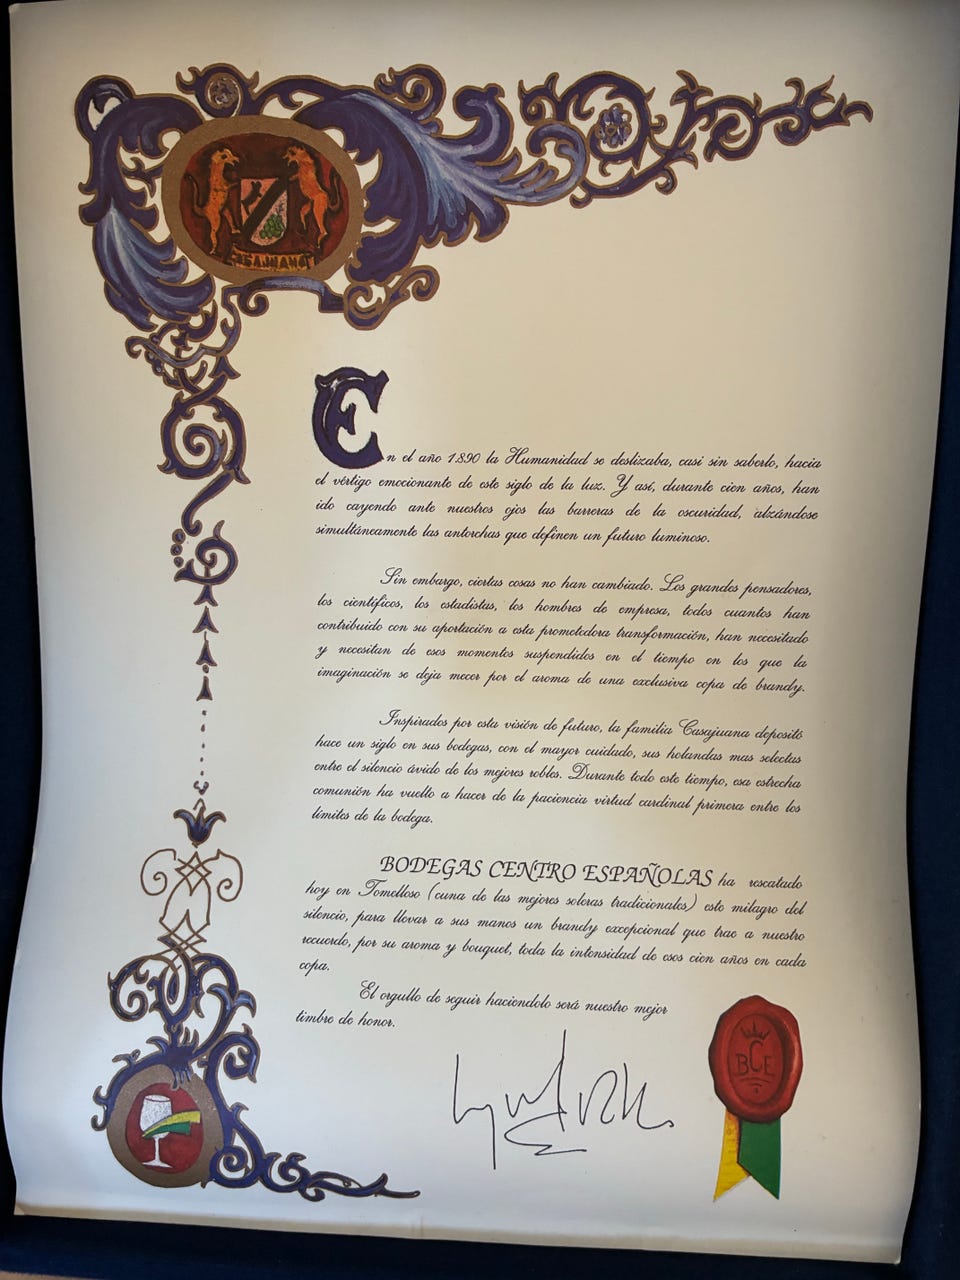 CASAJUANA
En el año 1.890 la Humanidad se deslizaba, casi sin saberlo, hacia
el vértigo emocionante de este siglo de la luz. Y así, durante cien años, han
ido cayendo ante nuestros ojos las barreras de la oscuridad, alzándose
simultáneamente las antorchas que definen un futuro luminoso.
Sin embargo, ciertas cosas no han cambiado. Los grandes pensadores,
los científicos, los estadistas, los hombres de empresa, todos cuantos han
contribuido con su aportación a esta prometedora transformación, han necesitado
y necesitan de esos momentos suspendidos en el tiempo en los que la
imaginación se deja mecer por el aroma de una exclusiva copa de brandy.
Inspirados por esta visión de futuro, la familia Casajuana depositó
hace un siglo en sus bodegas, con el mayor cuidado, sus holandas mas selectas
entre el silencio ávido de los mejores robles. Durante todo este tiempo, esa estrecha
comunión ha vuelto a hacer de la paciencia virtud cardinal primera entre los
límites de la bodega.
BODEGAS CENTRO ESPAÑOLAS ha rescatado
hoy en Tomelloso (cuna de las mejores soleras tradicionales) este milagro del
silencio, para llevar a sus manos un brandy excepcional que trae a nuestro
recuerdo, por su aroma y bouquet, toda la intensidad de esos cien años en cada
copa.
El orgullo de seguir haciendolo será nuestro mejor
timbre de honor.
BCE